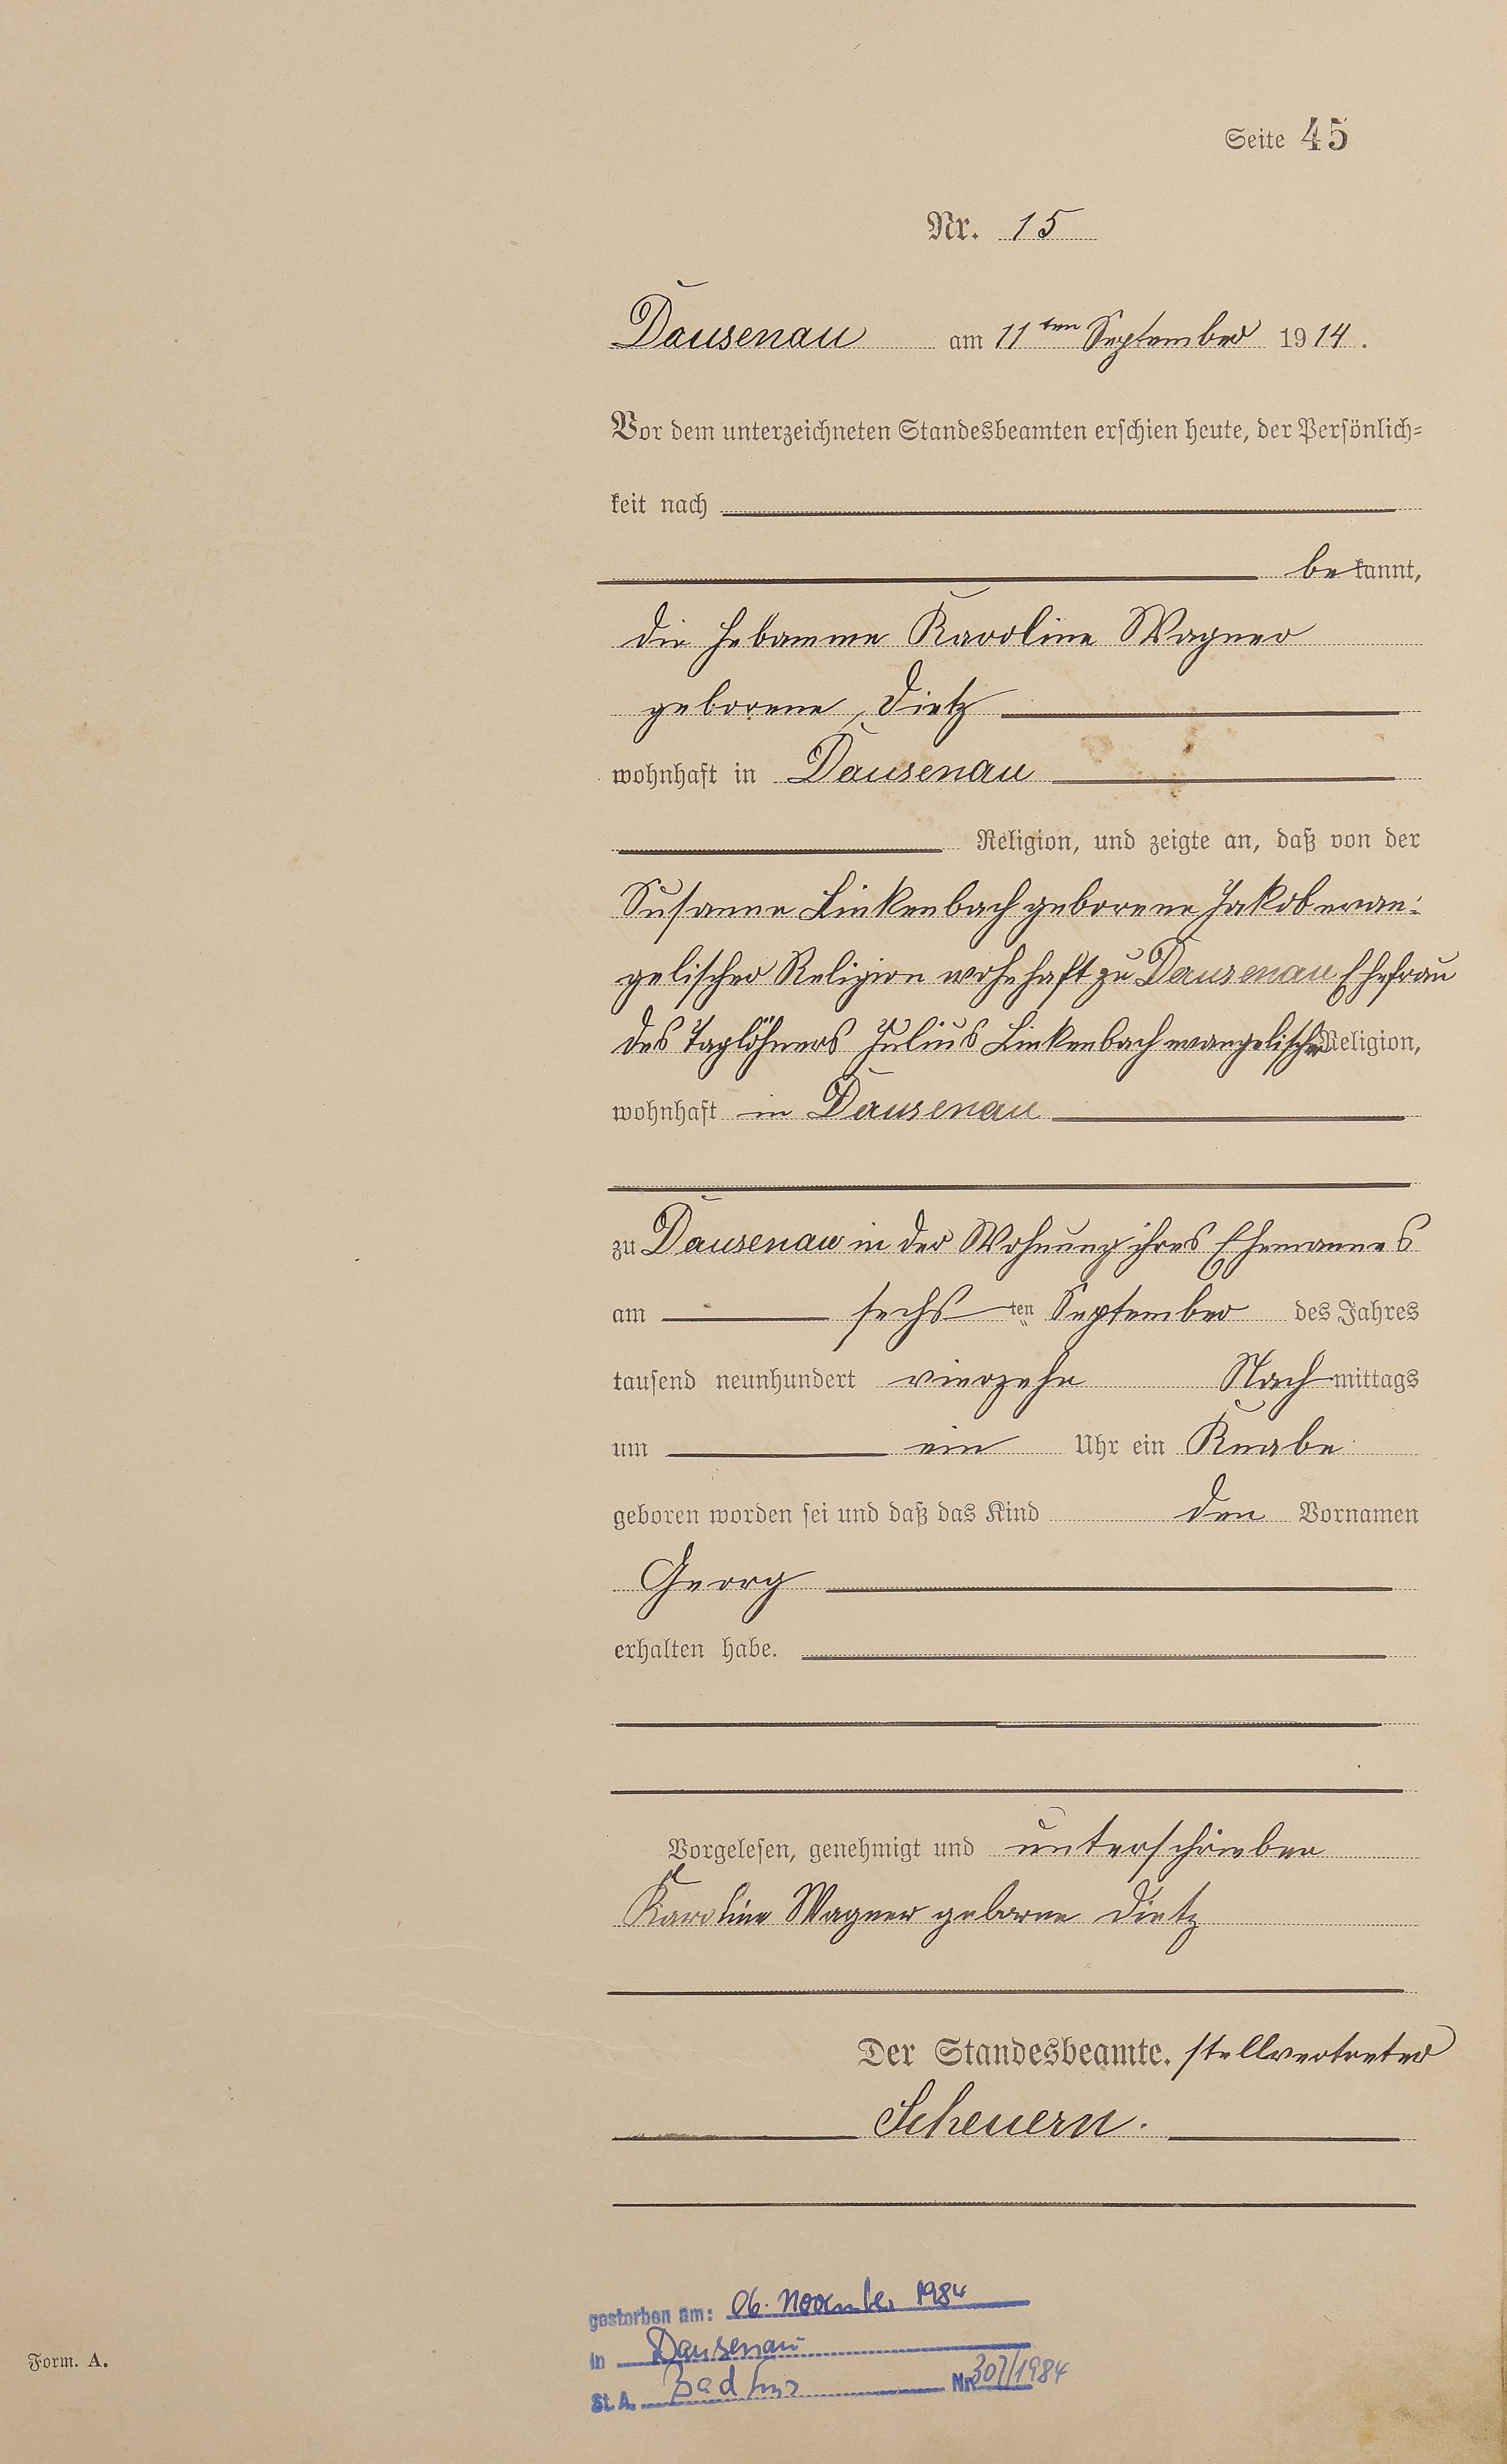 Seite 45
Nr. 15
Dausenau am 11ten September 1914.
Vor dem unterzeichneten Standesbeamten erschien heute, der Persönlich=
keit nach
bekannt,
die Hebamme Karoline Wagner
geborene Dietz
wohnhaft in Dausenau
Religion, und zeigte an, daß von der
Susanna Linkenbach geborene Jakob evan:
gelischer Religion wohnhaft zu Dausenau Ehefrau
des Taglöhners Julius Linkenbach evangelischer Religion,
wohnhaft in Dausenau
zu Dausenau in der Wohnung ihres Ehemannes
am sechsten September des Jahres
tausend neunhundert vierzehn Nachmittags
um ein Uhr ein Knabe
geboren worden sei und daß das Kind den Vornamen
Georg
erhalten habe.
Vorgelesen, genehmigt und unterschrieben
Karoline Wagner geborne Dietz
Der Standesbeamte. stellvertreter
Scheuern.
gestorben am: 06. November 1984
in Dausenau
St. A. Bad Ems Nr. 307/1984
Form. A.